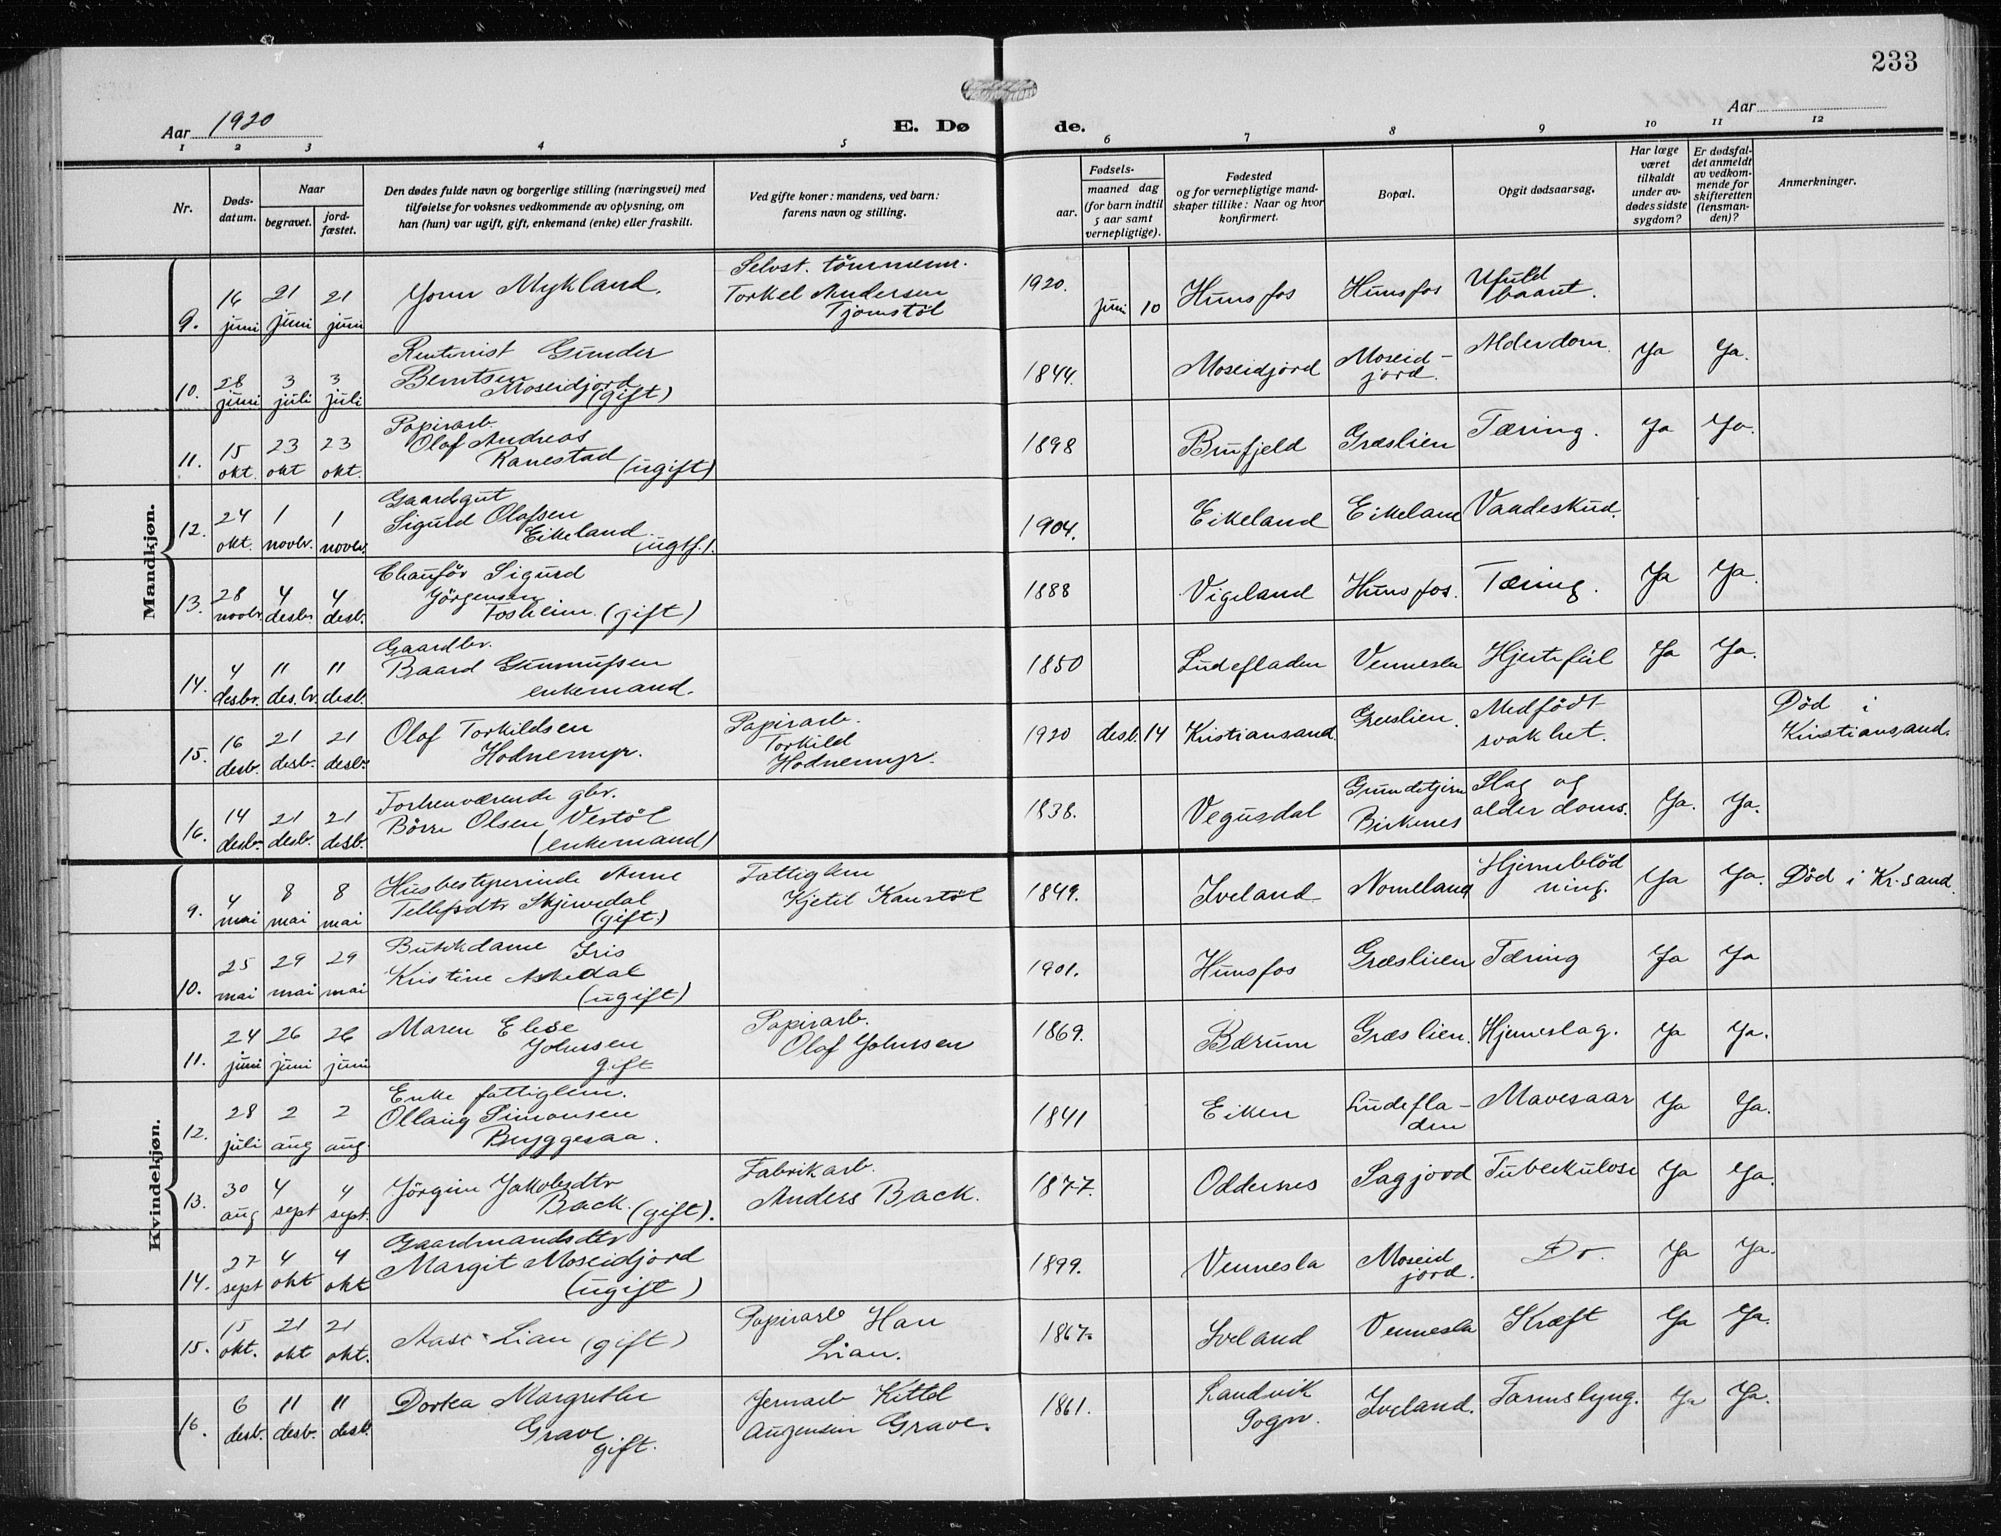 233
Aar 1920
E. Dø
de.
Aar
1 2 3 4 5 6 7 8 9 10 11 12
Nr.
Døds-
datum.
Naar
begravet.
jord-
fæstet.
Den dødes fulde navn og borgerlige stilling (næringsvei) med
tilføielse for voksnes vedkommende av oplysning, om
han (hun) var ugift, gift, enkemand (enke) eller fraskilt.
Ved gifte koner: mandens, ved barn:
farens navn og stilling.
Fødsels-
aar.
maaned dag
(for barn indtil
5 aar samt
vernepligtige).
Fødested
og for vernepligtige mand-
skaper tillike: Naar og hvor
konfirmert.
Bopæl.
Opgit dødsaarsag.
Har læge
været
tilkaldt
under av-
dødes sidste
sygdom?
Er dødsfal-
det anmeldt
av vedkom-
mende for
skifteretten
(lensman-
den)?
Anmerkninger.
Mandkjøn.
9. 16 juni 21 juni 21 juni
Jonn Mykland.
Selvst. tömmerm.
Torkel Andersen
Tjomstöl
1920. juni 10 Hunsfos Hunsfos
Ufuld
baaret.
10. 28 juni 3 juli 3 juli
Rentenist Gunder
Berntsen
Moseidjord
(gift)
1844. Moseidjord
Moseid-
jord.
Alderdom. Ja Ja.
11. 15 okt. 23 okt 23 okt.
Papirarb.
Olaf Andreas
Ranestad (ugift)
1898 Bufjeld Græslien Tæring. Ja Ja.
12. 24 okt. 1 novbr. 1 novbr.
Gaardgut
Sigurd Olafsen
Eikeland (ugift).
1904. Eikeland Eikeland Vaadeskud.
13. 28 novbr. 4 desbr. 4 desb.
Chauför Sigurd
Jörgensen
Foskeim. (gift)
1888 Vigeland Hunsfos. Tæring. Ja Ja.
14. 4 desbr. 11 des.br. 11 desb.
Gaardbr.
Baard Gunnufsen
enkemand.
1850 Ludefladen Vennesla Hjertefeil Ja Ja.
15. 16 desb. 21 desb. 21 desb.
Olaf Torkildsen
Hodnemyr.
Papirarb.
Torkild
Hodnemyr.
1920 desb. 14 Kristiansand. Græslien.
Medfödt
svakhet.
Död i
Kristiansand.
16. 14 desbr. 21 desb. 21 desb.
Forhenværende gbr.
Börre Olsen Vestöl
(enkemand)
1838. Vegusdal
Birkenes
Slag og
alderdoms. Ja. Ja.
Kvindekjøn.
9. 4 mai 8 mai 8 mai
Husbestyrerinde Anne
Tellefsdtr Skjevedal
(gift)
Fattiglem
Kjetil Kaustöl
1849. Iveland Nomeland
Hjerneblöd
ning. Ja Ja. Död i Kr.sand.
10. 25 mai 29 mai 29 mai
Butikdame Iris
Kristine Askedal
(ugift)
1901. Hunsfos Græslien Tæring Ja Ja
11. 24 juni 26 juni 26 juni
Maren Elise
Johnsen
gift
Papirarb.
Olaf Johnsen
1869. Bærum Græslien. Hjerneslag. Ja Ja.
12. 28 juli 2 aug 2 aug.
Enke fattiglem.
Ollaug Simonsen
Bryggesaa.
1841 Eiken
Ludefla-
den
Mavesaar Ja Ja.
13. 30 aug 4 sept 4 sept.
Jörgine Jakobsdtr
Back. (gift).
Fabrikarb.
Anders Back.
1877. Oddernes Sagjord Tuberkulose Ja Ja.
14. 27 sept 4 okt 4 okt
Gaardmandsdtr
Margit Moseidjord
(ugift)
1899. Vennesla
Moseid
jord.
Do. Ja Ja.
15. 15 okt. 21 okt 21 okt.
Aase Lian (gift)
Papirarb Han
Lian.
1867. Iveland Vennesla Kræft Ja Ja.
16. 6 desb. 11 desb. 11 desb.
Dortea Margrethe
Grave
gift.
Jernarb Kittel
Augensen Grave.
1861.
Landvik
Sogn.
Iveland. Tarmslyng. Ja Ja.